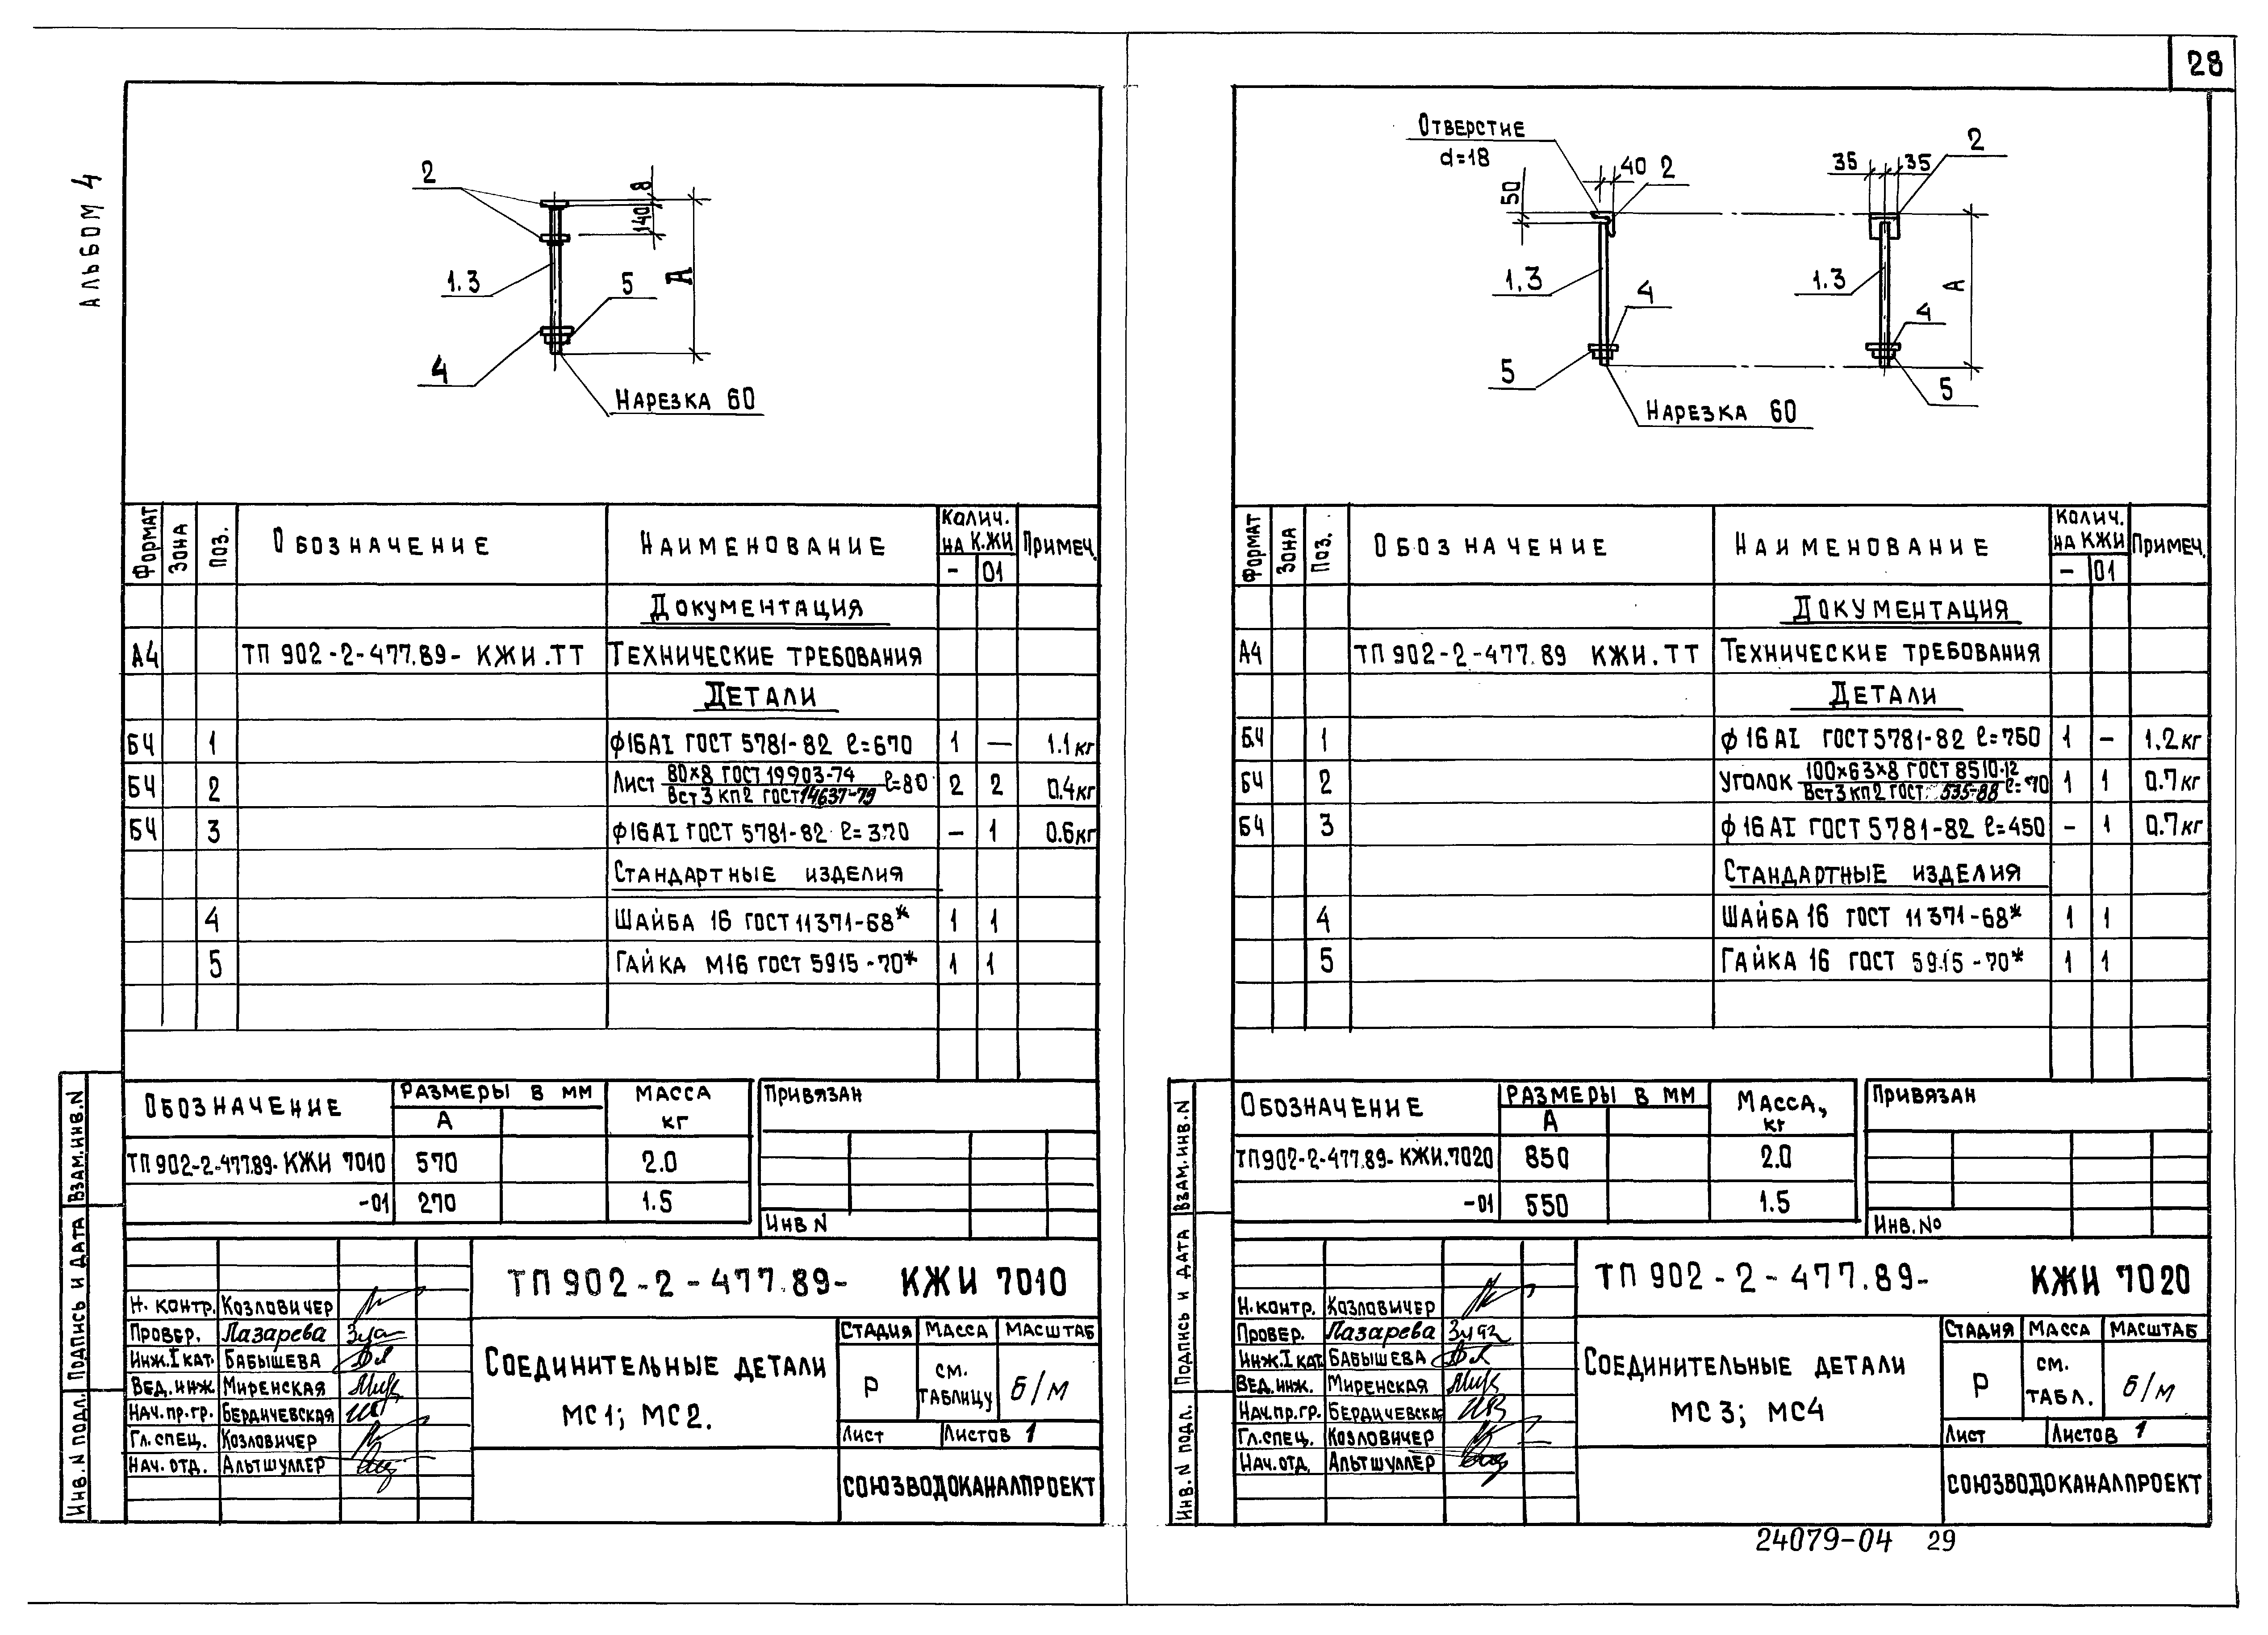 28
Альбом 4
2
8
140
1.3
5
А
4
Нарезка 60
Формат Зона Поз. Обозначение Наименование Колич. на КЖИ Примеч.
- 01
Документация
А4 ТП 902-2-477.89- КЖИ.ТТ Технические требования
Детали
БЧ 1 ф16АI ГОСТ 5781-82 ℓ=670 1 — 1.1кг
БЧ 2 Лист 80×8 ГОСТ 19903-74 ℓ=80 2 2 0.4кг
Вст3 кп2 ГОСТ 14637-79
БЧ 3 ф16АI ГОСТ 5781-82 ℓ=370 - 1 0.6кг
Стандартные изделия
4 Шайба 16 ГОСТ 11371-68* 1 1
5 Гайка М16 ГОСТ 5915-70* 1 1
Обозначение Размеры в мм Масса кг
А
ТП 902-2-477.89- КЖИ 7010 570 2.0
-01 270 1.5
Привязан
Инв N
Взам.инв.N
Подпись и дата
Инв. N подл.
ТП 902-2-477.89- КЖИ 7010
Н. контр. Козловичер
Провер. Лазарева
Инж.I кат. Бабышева
Вед.инж Миренская
Нач.пр.гр. Бердичевская
Гл. спец. Козловичер
Нач. отд. Альтшуллер
Соединительные детали
МС1; МС2.
Стадия Масса Масштаб
Р см. таблицу б/м
Лист Листов 1
СОЮЗВОДОКАНАЛПРОЕКТ
Отверстие
d=18
40 2
50
1.3
4
5
Нарезка 60
35 35
2
1.3
А
4
5
Формат Зона Поз. Обозначение Наименование Колич. на КЖИ Примеч.
- 01
Документация
А4 ТП 902-2-477.89 КЖИ.ТТ Технические требования
Детали
БЧ 1 ф16АI ГОСТ 5781-82 ℓ=750 1 - 1.2кг
БЧ 2 Уголок 100×63×8 ГОСТ 8510-12 ℓ=70 1 1 0.7кг
Вст3 кп2 ГОСТ 535-88
БЧ 3 ф16АI ГОСТ 5781-82 ℓ=450 - 1 0.7кг
Стандартные изделия
4 Шайба 16 ГОСТ 11371-68* 1 1
5 Гайка 16 ГОСТ 5915-70* 1 1
Обозначение Размеры в мм Масса, кг
А
ТП 902-2-477.89- КЖИ.7020 850 2.0
-01 550 1.5
Привязан
Инв. №
Взам.инв.N
Подпись и дата
Инв. N подл.
ТП 902-2-477.89- КЖИ 7020
Н. контр. Козловичер
Провер. Лазарева
Инж.I кат. Бабышева
Вед. инж. Миренская
Нач.пр.гр. Бердичевская
Гл.спец. Козловичер
Нач.отд. Альтшуллер
Соединительные детали
МС3; МС4
Стадия Масса Масштаб
Р см. табл. б/м
Лист Листов 1
СОЮЗВОДОКАНАЛПРОЕКТ
24079-04 29